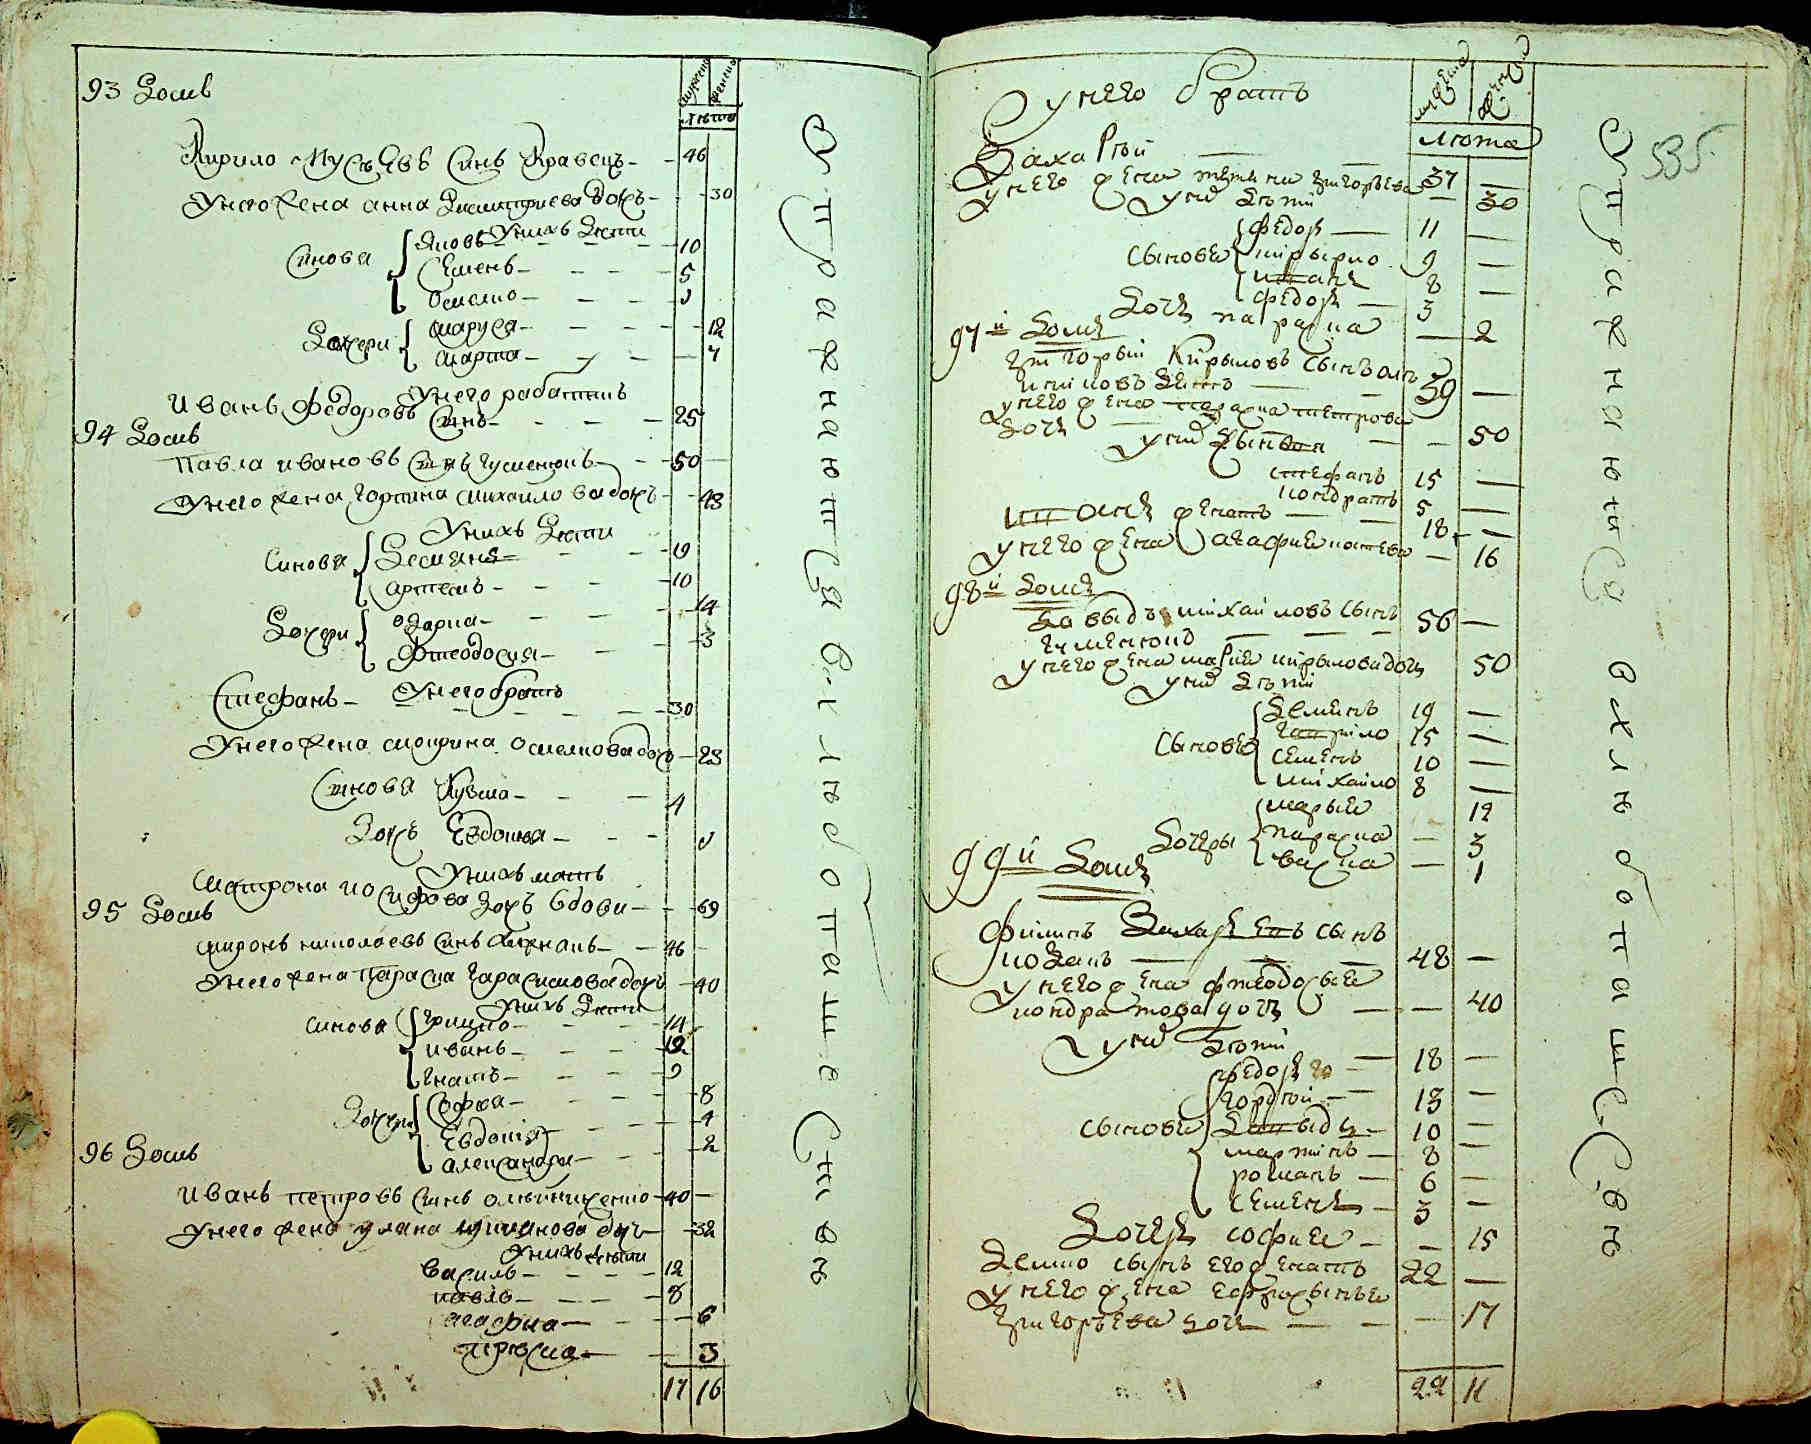 93 Домъ
мужеска
женска
лѣта
Кирило Мусѣевъ Синъ Кравецъ 46
Унего жена анна Дмитриева дочь 30
Унихъ дѣти
Синовя Яковъ 10
Семенъ 5
Осмелко
Дочери Маруся 12
Марта 7
Унего работникъ
Иванъ Федоровъ Синъ 25
94 Домъ
Павла ивановъ Синъ 50
Унего жена Горпина Михайлова дочь 48
Унихъ дѣти
Синовя Демяня 19
Артемъ 10
Дочери одарка 14
Фтеодосия 3
Унего братъ
Стефанъ 30
Унего жена мотрина дочь 23
Синовя Кузма 4
Дочъ Евдокия
Унихъ мать
Матрона иосифова Дочъ вдови 69
95 Домъ
миронъ николаевъ Синъ 46
Унего жена Параска Гарасимова дочъ 40
Унихъ дѣти
Синовя Грицко 14
иванъ 12
Игнатъ 9
Дочери Софка 8
Евдокія 4
Александра 2
96 Домъ
Иванъ петровъ Синъ 40
Унего жена уляна дочъ 32
Унихъ дѣти
Василь 12
павло 8
агафка 6
приска 3
17 16
Управнаются въ людопашествѣ
Унего братъ
мужеска
лѣта
Захарѣй 37
унего жена татьяна григорьева 30
уних дѣти
сыновѣ федор 11
кирырко 9
иван 8
федор 3
дочь параска 2
97й Домъ
григорый Кирыловъ сынъ 59
унего жена параска петрова
дочь 50
уних сыновя
стефанъ 15
кондратъ 5
иван женатъ 18
унего жена агафие 16
98й домъ
давыдъ михайловъ сынъ 56
унего жена марие кирылова дочь 50
уних дѣти
сыновѣ Деменъ 19
гаврило 15
семенъ 10
михайло 8
дочеры марые 12
параска 3
васка 1
99й Домъ
Филипъ Захарѣевъ сынъ
кодакъ 48
унего жена фтеодосые
кондратова дочь 40
уних дѣти
сыновѣ федор 18
гордѣй 13
давыд 10
мартинъ 8
романъ 6
семенъ 3
дочь софие 15
демко сынъ его женатъ 22
унего жена ефросынье
григорьева дочь 17
22 11
Управнаются въ хлѣбопашествѣ
535